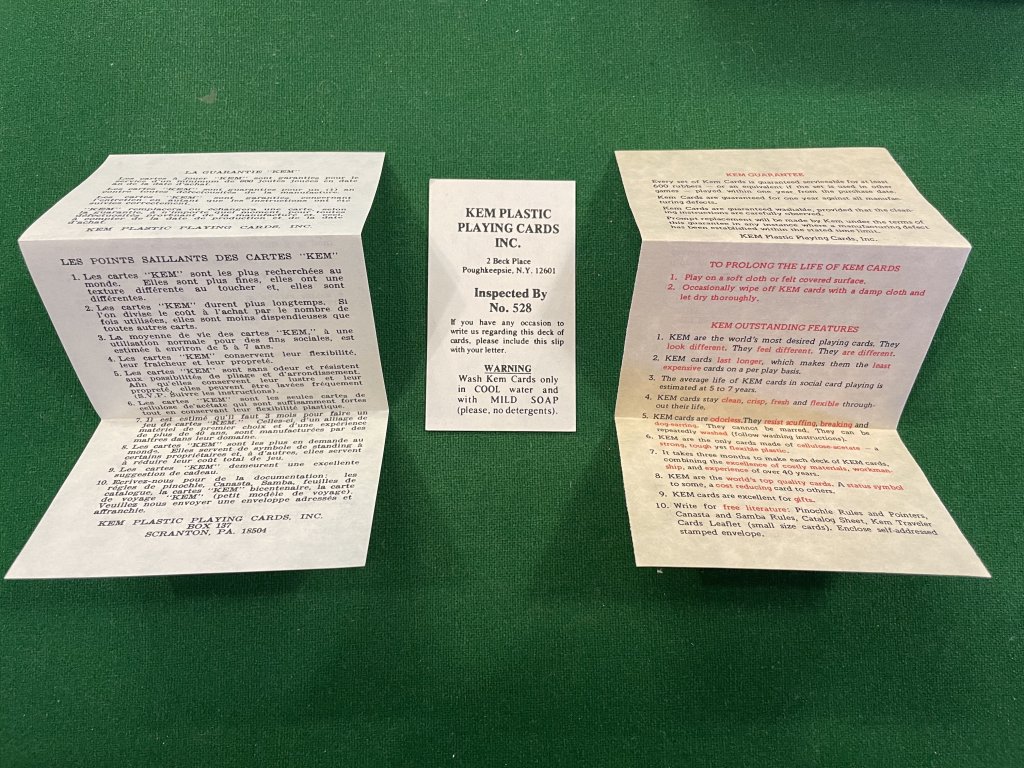 LA GUARANTIE "KEM"
Les cartes à jouer "KEM" sont garanties pour le
service d'un minimum de 600 joutes jouées en dedans
an de la date d'achat.
Les cartes "KEM" sont guaranties pour un (1) an
contre toutes défectuosités de la manufacture.
KEM PLASTIC PLAYING CARDS, INC.
LES POINTS SAILLANTS DES CARTES "KEM"
1. Les cartes "KEM" sont les plus recherchées au
monde. Elles sont plus fines, elles ont une
texture différente au toucher et, elles sont
différentes.
2. Les cartes "KEM" durent plus longtemps. Si
l'on divise le coût à l'achat par le nombre de
fois utilisées, elles sont moins dispendieuses que
toutes autres carts.
3. La moyenne de vie des cartes "KEM," à une
utilisation normale pour des fins sociales, est
estimée à environ de 5 à 7 ans.
4. Les cartes "KEM" conservent leur flexibilité,
leur fraîcheur et leur propreté.
5. Les cartes "KEM" sont sans odeur et résistent
aux possibilités de pliage et d'arrondissement.
Afin qu'elles conservent leur lustre et leur
propreté, elles peuvent être lavées fréquement
(S.V.P. Suivre les instructions).
6. Les cartes "KEM" sont les seules cartes de
cellulose d'acétate qui sont suffisamment fortes
tout en conservant leur flexibilité plastique.
7. Il est estimé qu'il faut 3 mois pour faire un
jeu de cartes "KEM." Celles-ci, d'un alliage de
matériel de premier choix et d'une expérience
de plus de 40 ans, sont manufacturées par des
maîtres dans leur domaine.
8. Les cartes "KEM" sont les plus en demande au
monde. Elles servent de symbole de standing à
certains propriétaires et, à d'autres, elles servent
à réduire leur coût total de jeu.
9. Les cartes "KEM" demeurent une excellente
suggestion de cadeau.
10. Ecrivez-nous pour de la documentation: les
règles de pinochle, Canasta, Samba, feuilles de
catalogue, la cartes "KEM" bicentenaire, la carte
de voyage "KEM" (petit modèle de voyage).
Veuillez nous envoyer une enveloppe adressée et
affranchie.
KEM PLASTIC PLAYING CARDS, INC.
BOX 137
SCRANTON, PA. 18504
KEM PLASTIC
PLAYING CARDS
INC.
2 Beck Place
Poughkeepsie, N.Y. 12601
Inspected By
No. 528
If you have any occasion to
write us regarding this deck of
cards, please include this slip
with your letter.
WARNING
Wash Kem Cards only
in COOL water and
with MILD SOAP
(please, no detergents).
KEM GUARANTEE
Every set of Kem Cards is guaranteed serviceable for at least
600 rubbers — or an equivalent if the set is used in other
games — played within one year from the purchase date.
Kem Cards are guaranteed for one year against all manufac-
turing defects.
Kem Cards are guaranteed washable, provided that the clean-
ing instructions are carefully observed.
Prompt replacement will be made by Kem, under the terms of
this guarantee, in any instance where a manufacturing defect
has been established within the stated time limit.
KEM Plastic Playing Cards, Inc.
TO PROLONG THE LIFE OF KEM CARDS
1. Play on a soft cloth or felt covered surface.
2. Occasionally wipe off KEM cards with a damp cloth and
let dry thoroughly.
KEM OUTSTANDING FEATURES
1. KEM are the world's most desired playing cards. They
look different. They feel different. They are different.
2. KEM cards last longer, which makes them the least
expensive cards on a per play basis.
3. The average life of KEM cards in social card playing is
estimated at 5 to 7 years.
4. KEM cards stay clean, crisp, fresh and flexible through-
out their life.
5. KEM cards are odorless. They resist scuffing, breaking and
dog-earing. They cannot be marred. They can be
repeatedly washed (follow washing instructions).
6. KEM are the only cards made of cellulose-acetate — a
strong, tough yet flexible plastic.
7. It takes three months to make each deck of KEM cards,
combining the excellence of costly materials, workman-
ship, and experience of over 40 years.
8. KEM are the world's top quality cards. A status symbol
to some, a cost reducing card to others.
9. KEM cards are excellent for gifts.
10. Write for free literature: Pinochle Rules and Pointers,
Canasta and Samba Rules, Catalog Sheet, Kem Traveler
Cards Leaflet (small size cards). Enclose self-addressed
stamped envelope.